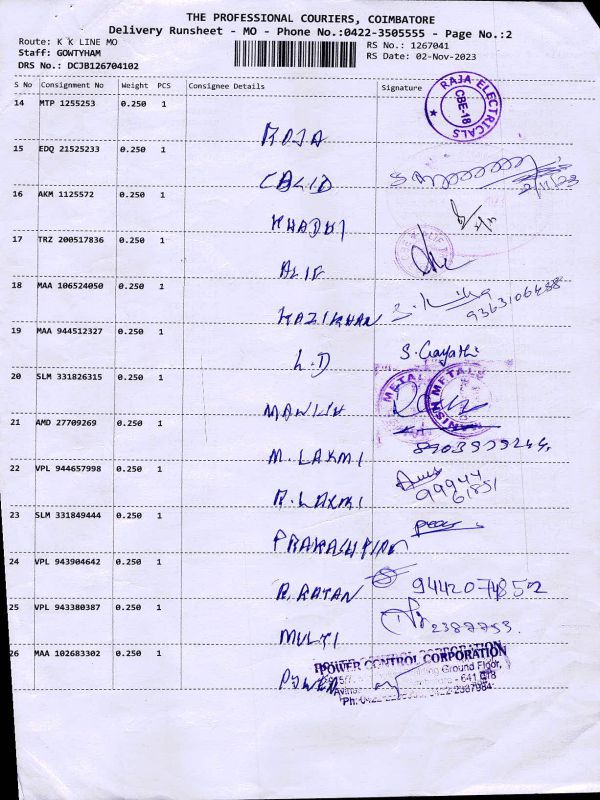 THE PROFESSIONAL COURIERS, COIMBATORE
Delivery Runsheet - MO - Phone No.:0422-3505555 - Page No.:2
Route: K K LINE MO
RS No.: 1267041
Staff: GOWTYHAM
RS Date: 02-Nov-2023
DRS No.: DCJB126704102
S No Consignment No Weight PCS Consignee Details Signature
14 MTP 1255253 0.250 1
ROJA
RAJA ELECTRICALS
CBE-18
15 EDQ 21525233 0.250 1
CALID
2/11/23
16 AKM 1125572 0.250 1
KHADHI
17 TRZ 200517836 0.250 1
ALIF
18 MAA 106524050 0.250 1
KAZIKHAN
9363106488
19 MAA 944512327 0.250 1
L.D
S. Gayathi
20 SLM 331826315 0.250 1
MANISH METALS
21 AMD 27709269 0.250 1
M. LAXMI
22 VPL 944657998 0.250 1
R. LAXMI
99944
61851
23 SLM 331849444 0.250 1
24 VPL 943904642 0.250 1
R. RATAN
9442074852
25 VPL 943380387 0.250 1
MULTI
2387753.
26 MAA 102683302 0.250 1
POWER
POWER CONTROL CORPORATION
Ground Floor,
- 641 018
0422-2387984